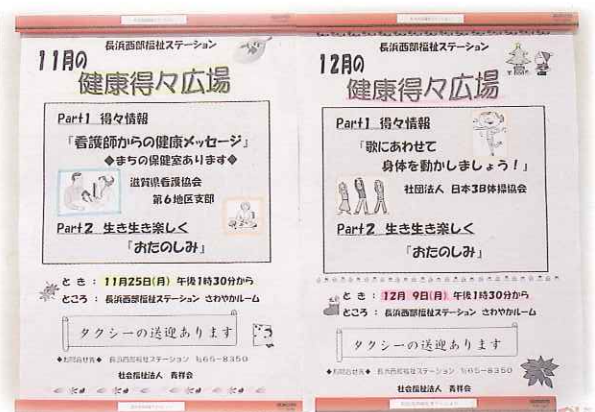 長浜西部福祉ステーション
11月の
健康得々広場
Part1 得々情報
「看護師からの健康メッセージ」
◆まちの保健室あります◆
滋賀県看護協会
第6地区支部
Part2 生き生き楽しく
「おたのしみ」
とき：11月25日(月) 午後1時30分から
ところ：長浜西部福祉ステーション さわやかルーム
タクシーの送迎あります
◆お問合せ先◆ 長浜西部福祉ステーション ℡65-8350
社会福祉法人 青祥会
長浜西部福祉ステーション
12月の
健康得々広場
Part1 得々情報
「歌にあわせて
身体を動かしましょう！」
社団法人 日本3B体操協会
Part2 生き生き楽しく
「おたのしみ」
とき：12月 9日(月) 午後1時30分から
ところ：長浜西部福祉ステーション さわやかルーム
タクシーの送迎あります
◆お問合せ先◆ 長浜西部福祉ステーション ℡65-8350
社会福祉法人 青祥会